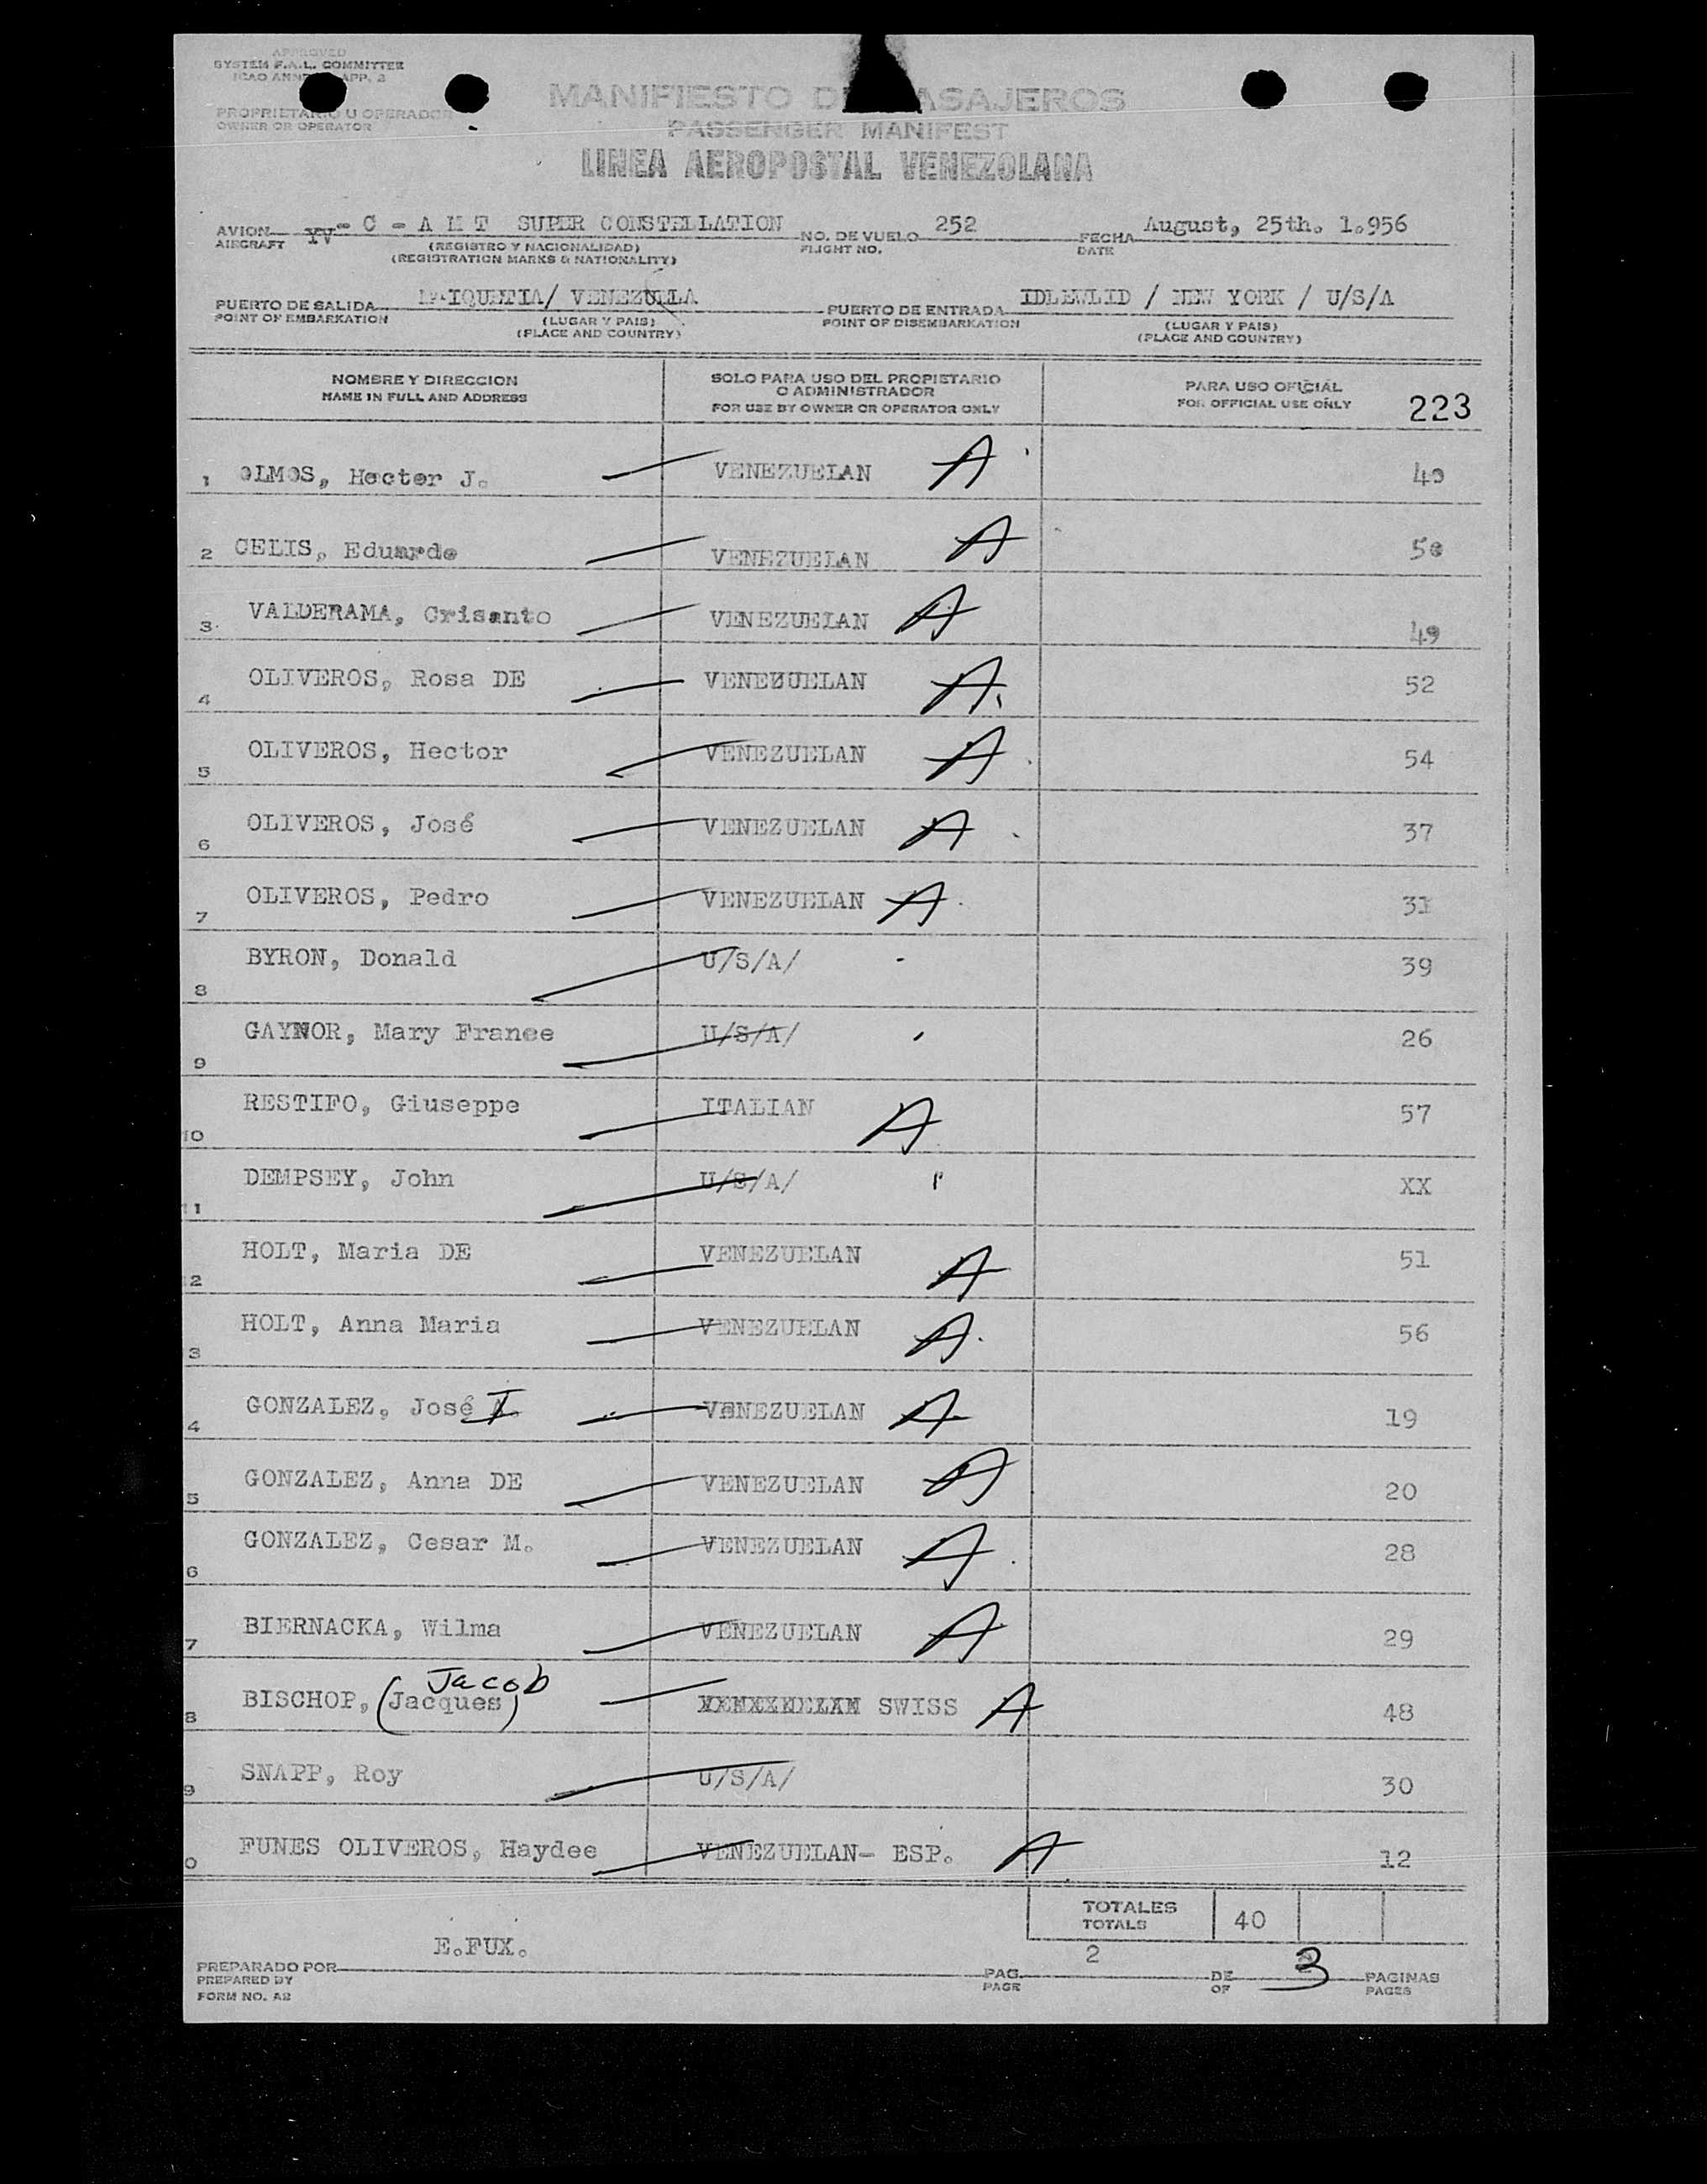 APPROVED
SYSTEM F.A.L. COMMITTEE
ICAO APP. 3
PROPRIETARIO U OPERADOR
OWNER OR OPERATOR
MANIFIESTO PASAJEROS
PASSENGER MANIFEST
LINEA AEROPOSTAL VENEZOLANA
AVION YV- C - A M T SUPER CONSTELLATION NO. DE VUELO 252 FECHA August, 25th. 1.956
AIRCRAFT (REGISTRO Y NACIONALIDAD) FLIGHT NO. DATE
(REGISTRATION MARKS & NATIONALITY)
PUERTO DE SALIDA MAIQUETIA/ VENEZUELA PUERTO DE ENTRADA IDLEWLID / NEW YORK / U/S/A
POINT OF EMBARKATION (LUGAR Y PAIS) POINT OF DISEMBARKATION (LUGAR Y PAIS)
(PLACE AND COUNTRY) (PLACE AND COUNTRY)
NOMBRE Y DIRECCION SOLO PARA USO DEL PROPIETARIO PARA USO OFICIAL
NAME IN FULL AND ADDRESS O ADMINISTRADOR FOR OFFICIAL USE ONLY 223
FOR USE BY OWNER OR OPERATOR ONLY
1 OLMOS, Hector J. VENEZUELAN A 40
2 CELIS, Eduardo VENEZUELAN A 50
3 VALDERAMA, Crisanto VENEZUELAN A 49
4 OLIVEROS, Rosa DE VENEZUELAN A 52
5 OLIVEROS, Hector VENEZUELAN A 54
6 OLIVEROS, José VENEZUELAN A 37
7 OLIVEROS, Pedro VENEZUELAN A 31
8 BYRON, Donald U/S/A/ 39
9 GAYNOR, Mary Franee U/S/A/ 26
10 RESTIFO, Giuseppe ITALIAN A 57
11 DEMPSEY, John U/S/A/ XX
2 HOLT, Maria DE VENEZUELAN A 51
3 HOLT, Anna Maria VENEZUELAN A 56
4 GONZALEZ, José I VENEZUELAN A 19
5 GONZALEZ, Anna DE VENEZUELAN A 20
6 GONZALEZ, Cesar M. VENEZUELAN A 28
7 BIERNACKA, Wilma VENEZUELAN A 29
Jacob
8 BISCHOF, (Jacques) SWISS A 48
9 SNAPP, Roy U/S/A/ 30
0 FUNES OLIVEROS, Haydee VENEZUELAN- ESP. A 12
TOTALES
TOTALS 40
E.FUX.
PREPARADO POR PAG. 2 DE 3 PAGINAS
PREPARED BY PAGE OF PAGES
FORM NO. A2